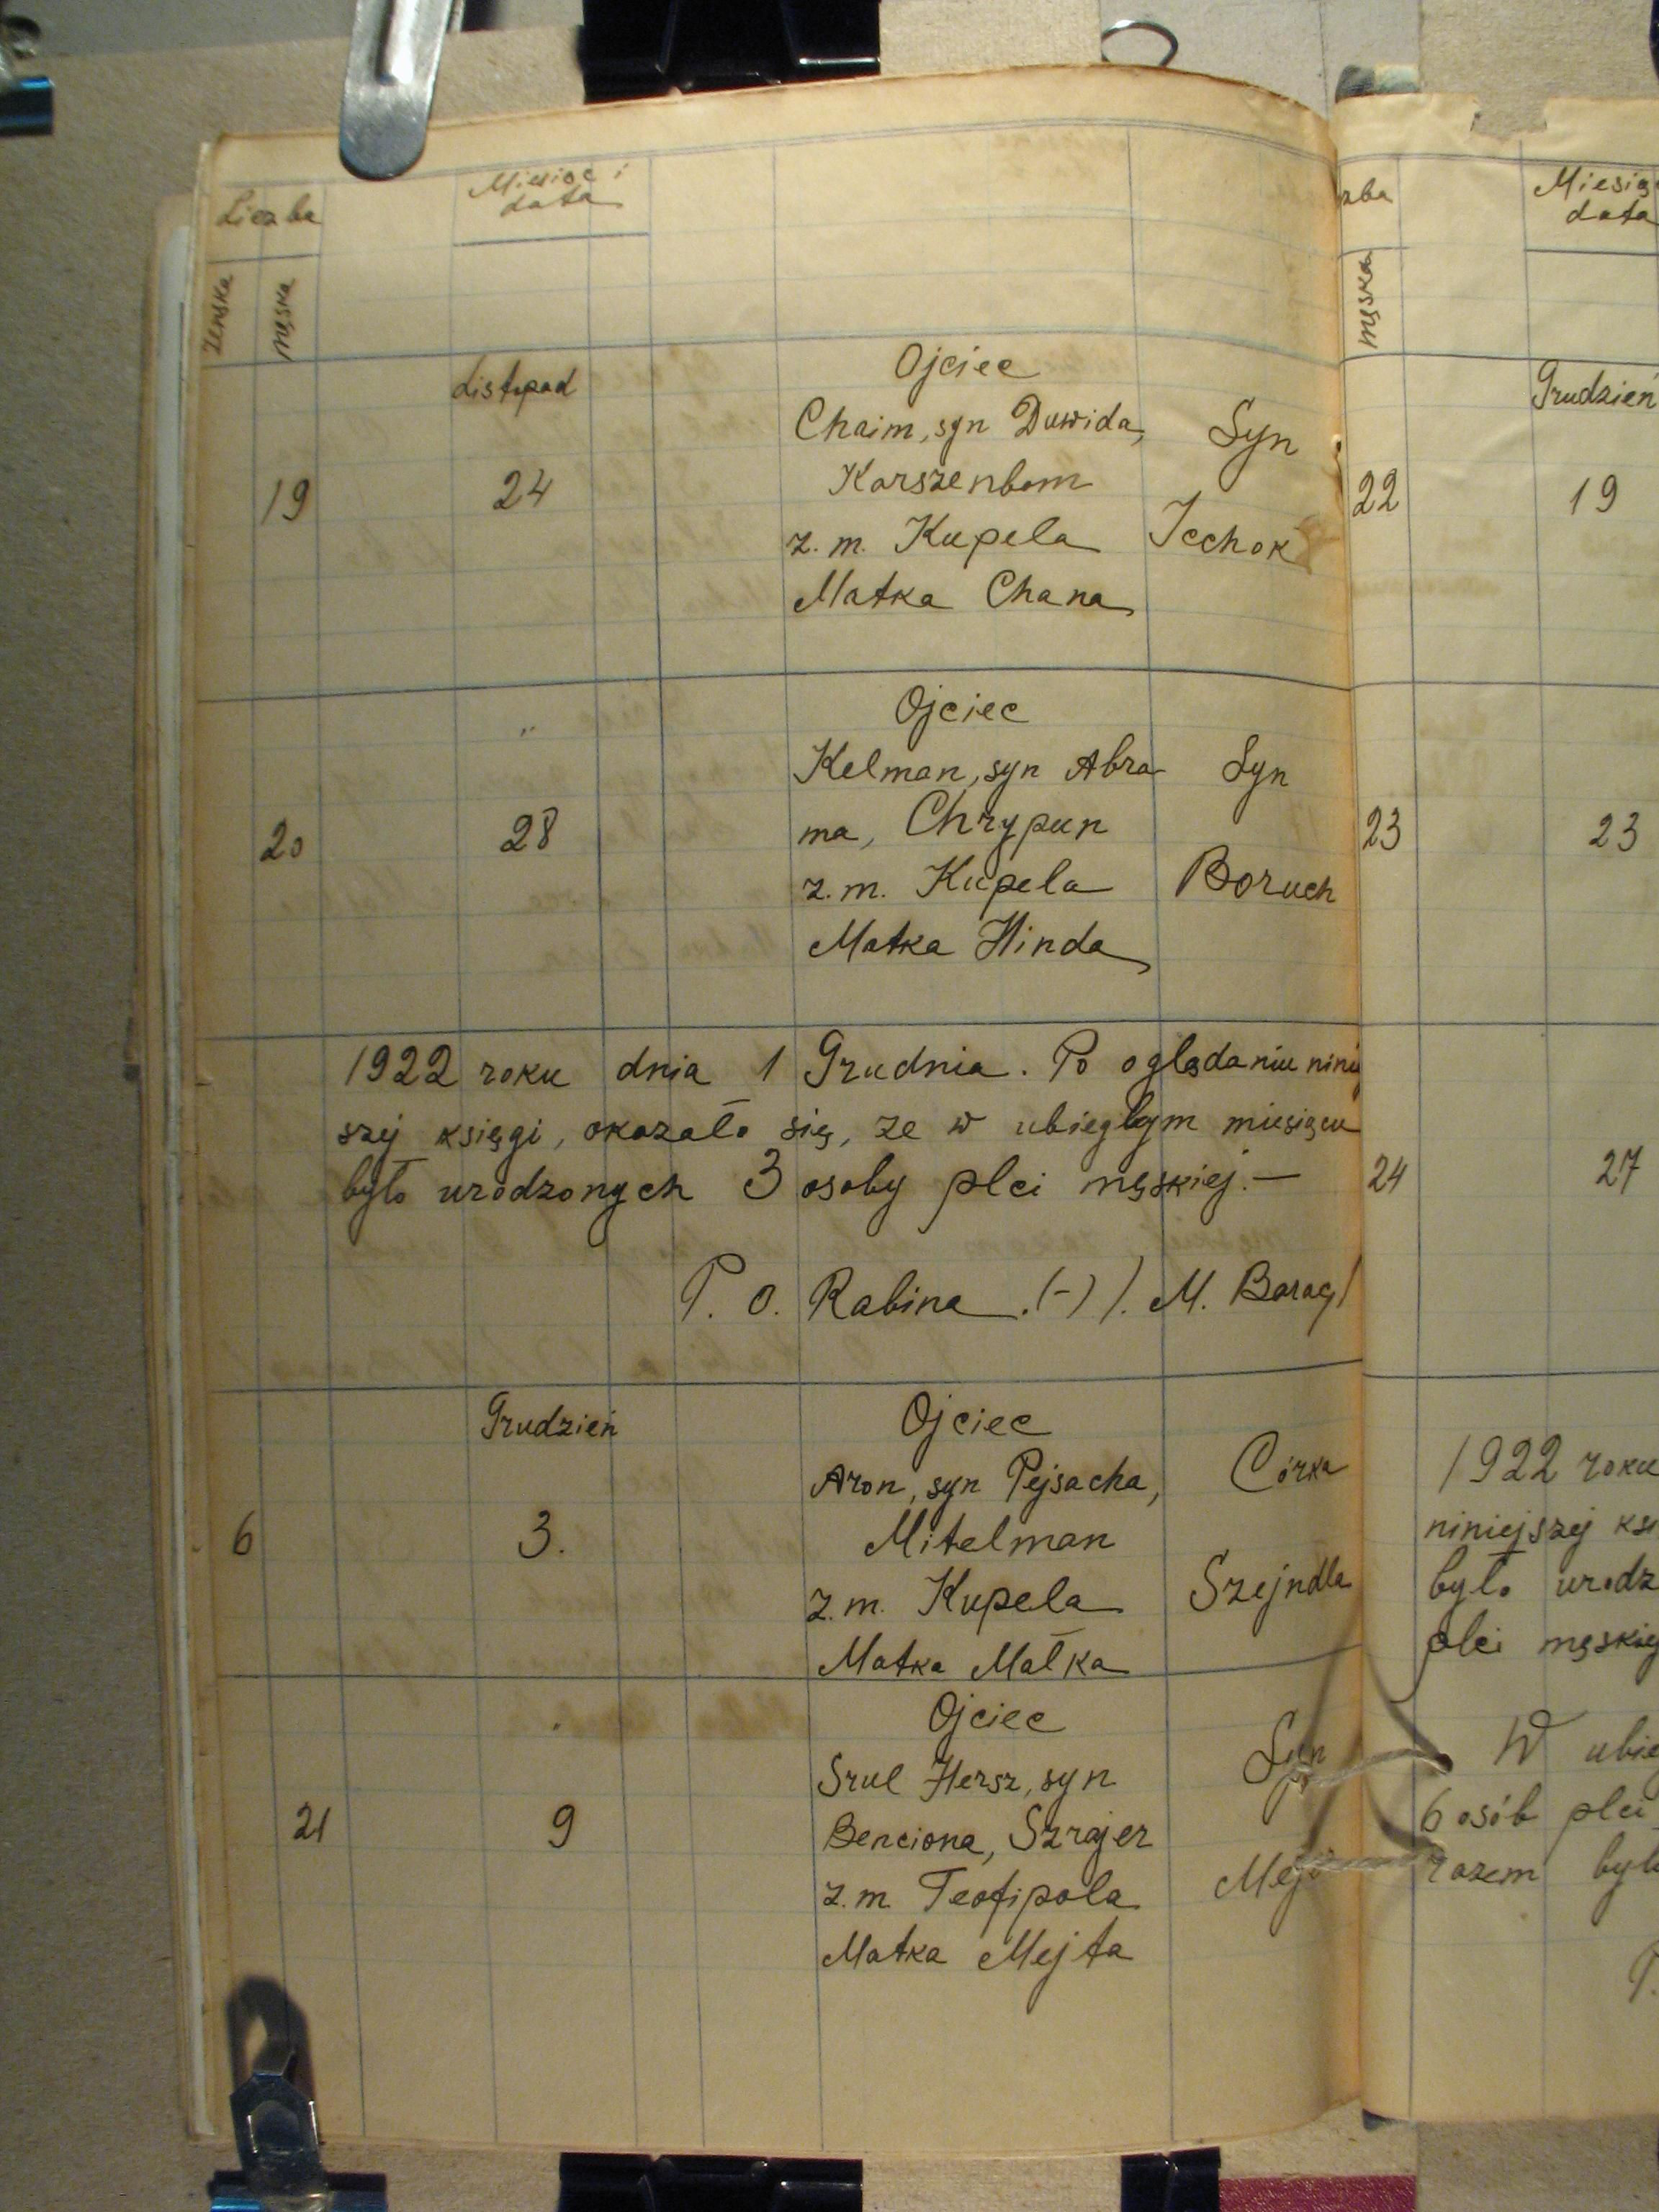 Liczba
Miesiąc i
data
żeńska
męska
Listopad
Ojciec
19
24
Chaim, syn Dawida,
Karszenbom
z. m. Kupela
Matka Chana
Syn
Icchok
"
Ojciec
20
28
Kelman, syn Abra-
ma, Chrypun
z. m. Kupela
Matka Hinda
Syn
Boruch
1922 roku dnia 1 Grudnia. Po oglądaniu niniej
szej księgi, okazało się, że w ubiegłym miesiącu
było urodzonych 3 osoby płci męskiej.—
P. O. Rabina .(-) /. M. Barac/
Grudzień
Ojciec
6
3.
Aron, syn Pejsacha,
Mitelman
z. m. Kupela
Matka Małka
Córka
Szejndla
Ojciec
21
9
Srul Hersz, syn
Benciona, Szrajer
z. m. Teofipola
Matka Mejta
Syn
zba
Miesiąc
data
męska
Grudzień
22
19
23
23
24
27
1922 roku
niniejszej ksi
było urodz
płci męskiej
W ubieg
6 osób płci
razem było
P.